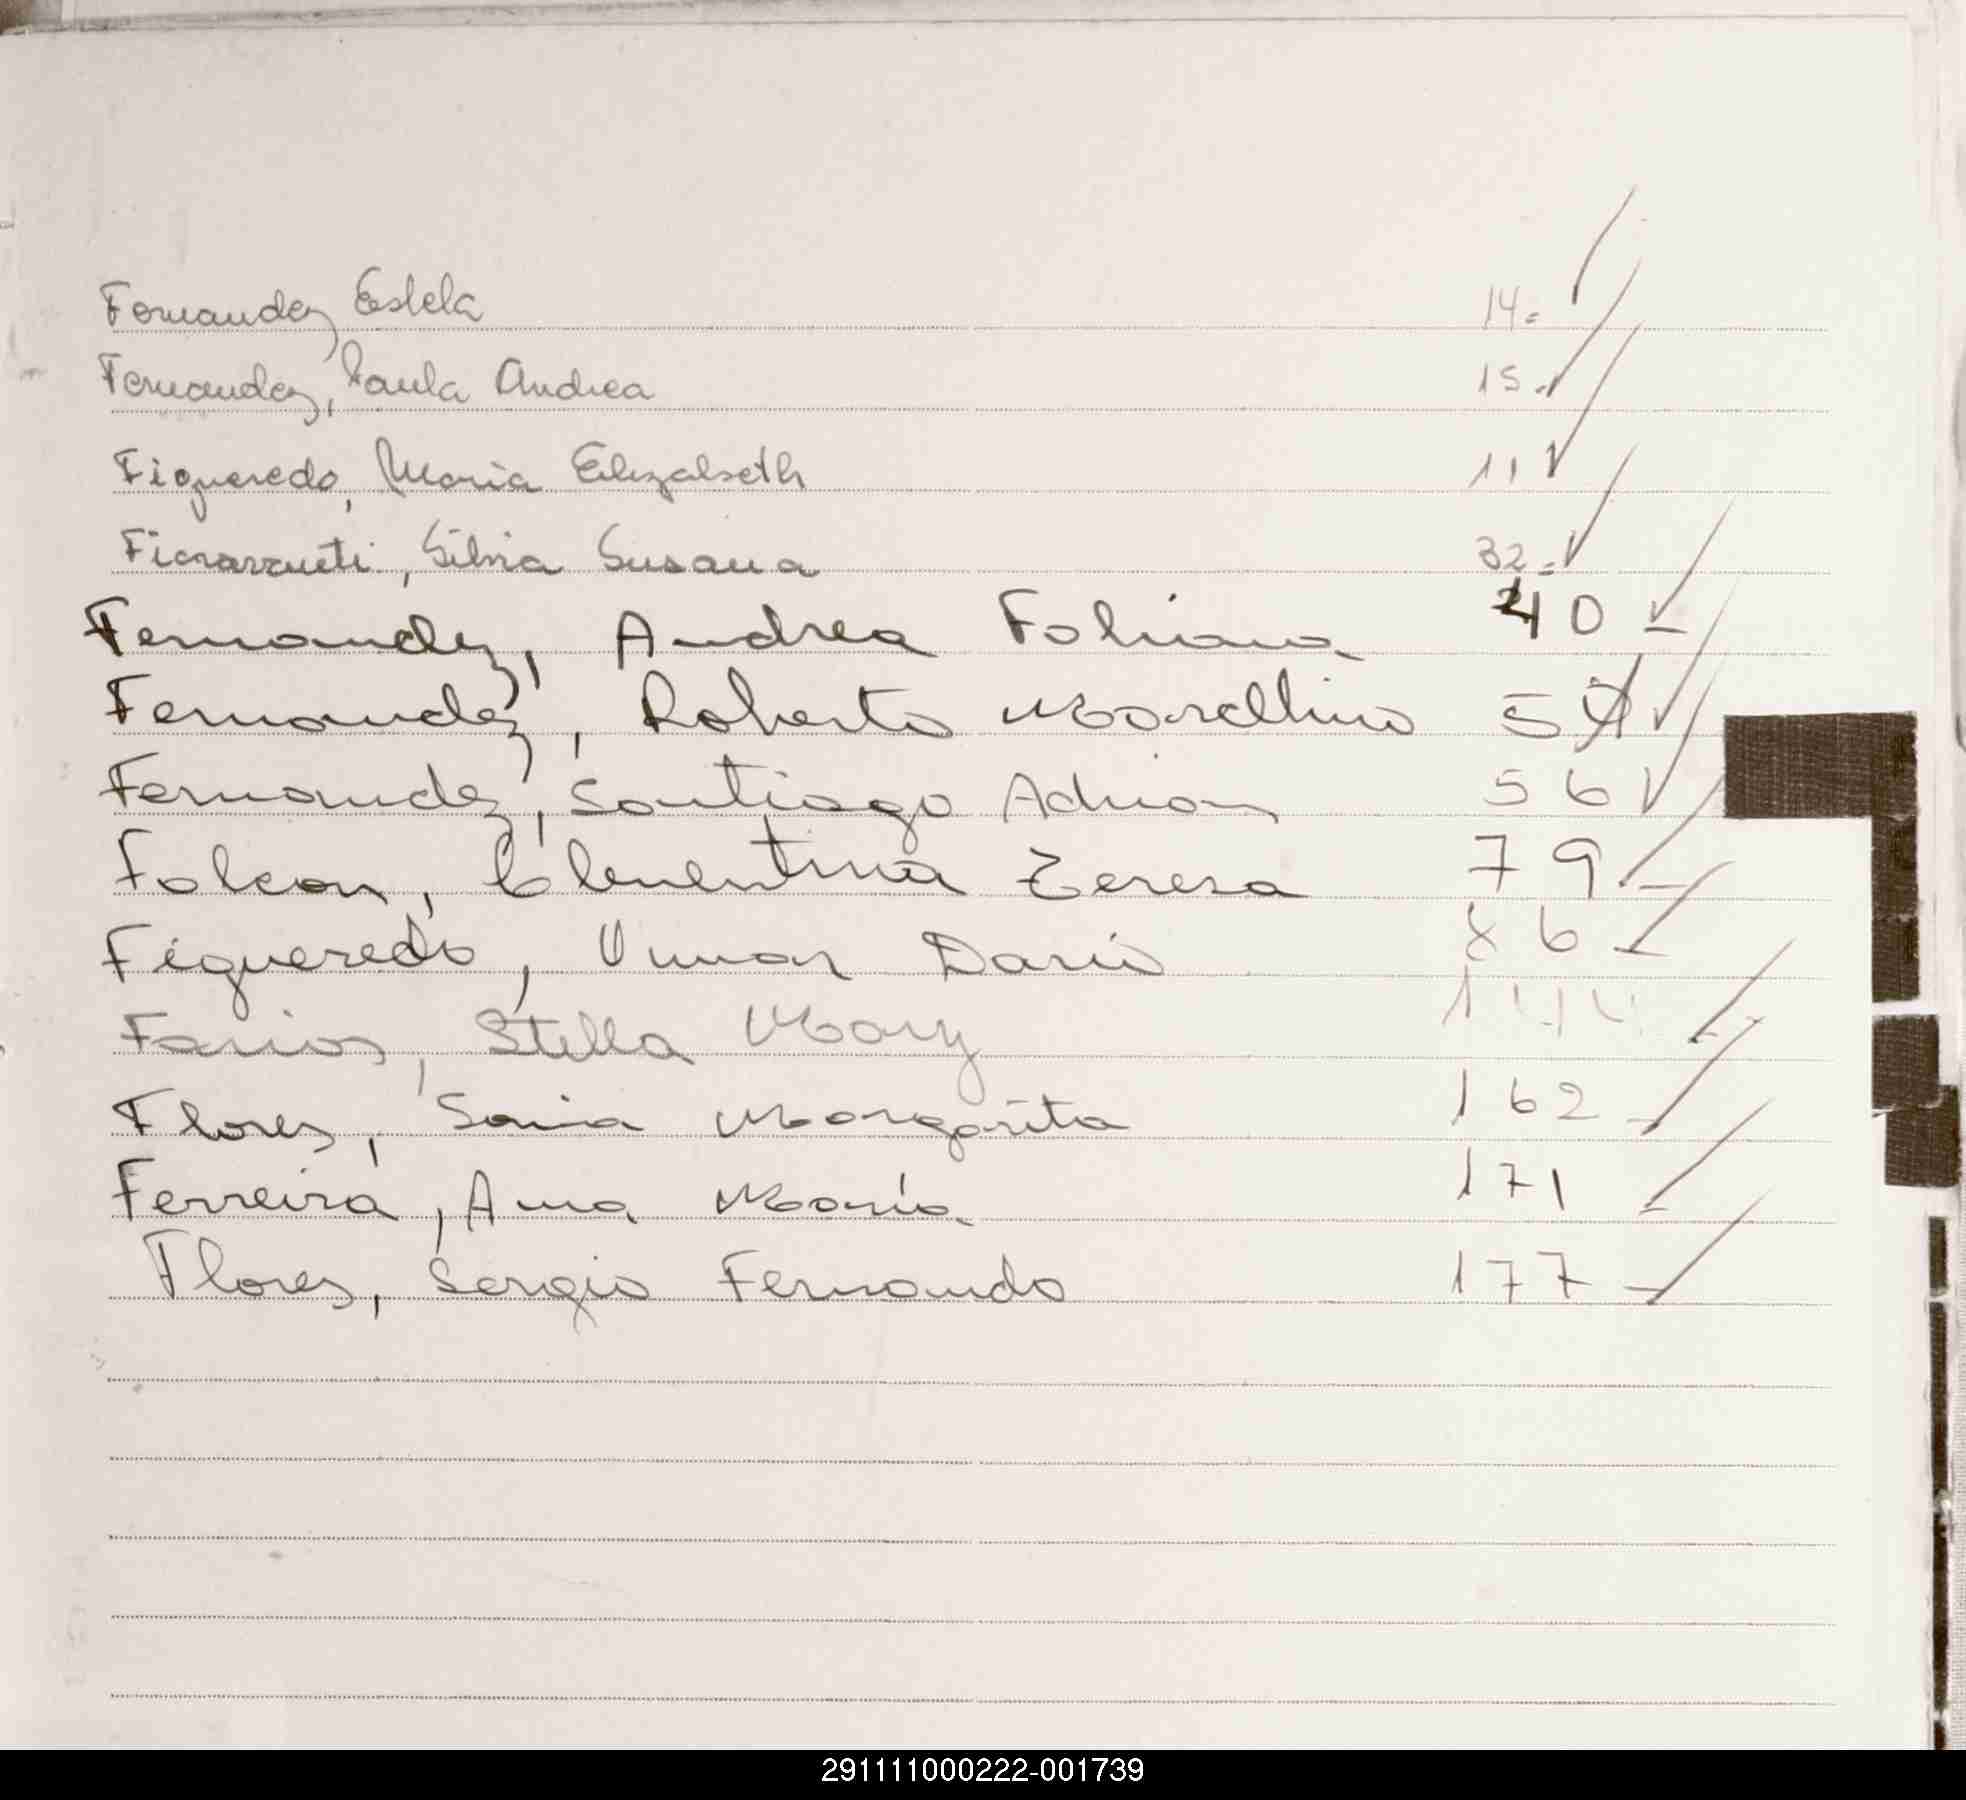 Fernandez Estela 14.=
Fernandez, Paula Andrea 15.
Figueredo, Maria Elizabeth 11
Fioravanti, Silvia Susana 32.=
Fernandez, Andrea Fabiana 40
Fernandez, Roberto Marcellino 5
Fernandez, Santiago Adrian 56
Falcon, Clementina Teresa 79
Figueredo, Omar Dario 86
Farias, Stella Mary 144
Flores, Sonia Margarita 162
Ferreira, Ana María 171
Flores, Sergio Fernando 177
291111000222-001739